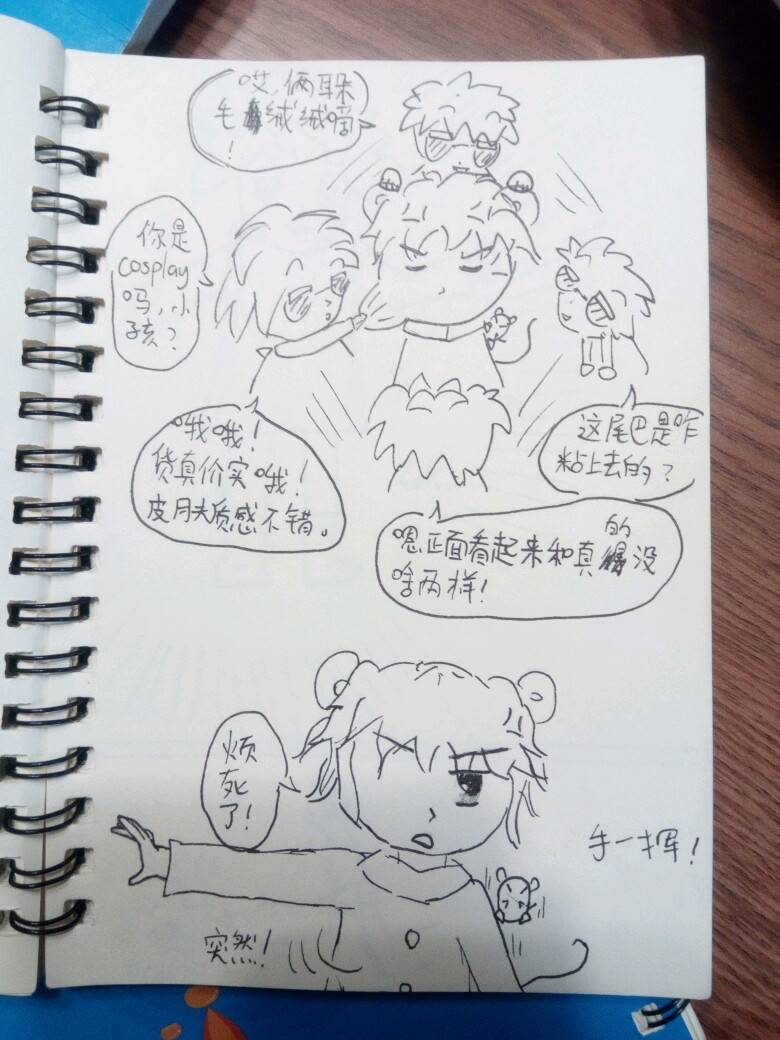 哎,俩耳朵
毛绒绒嘀
!
你是
cosplay
吗,小
孩?
哦哦!
货真价实哦!
皮肤质感不错。
这尾巴是咋
粘上去的?
嗯正面看起来和真的没
啥两样!
烦
死
了!
手一挥!
突然!